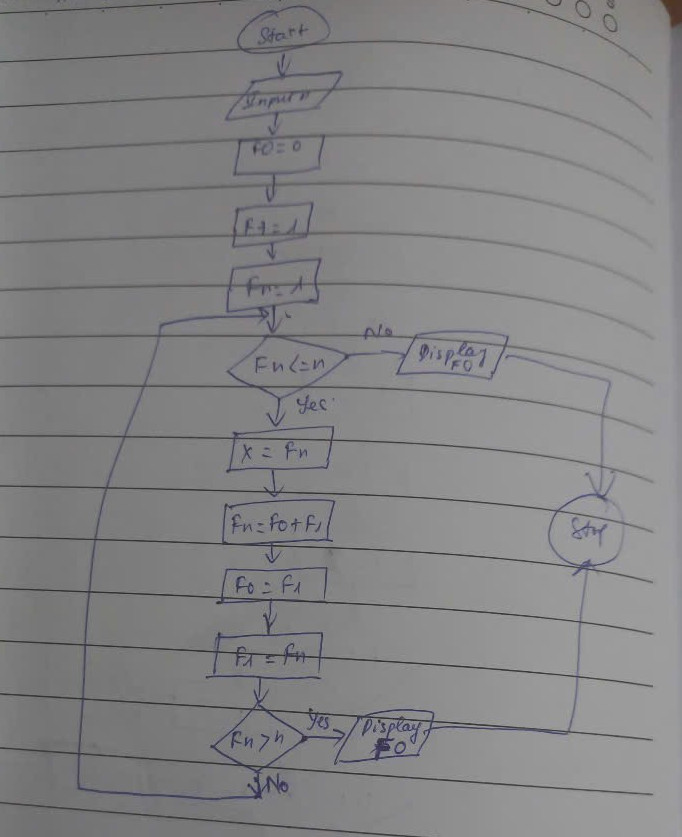 Start
Input n
F0 = 0
F1 = 1
Fn = 1
Fn <= n
No
Display
F0
Yes
X = Fn
Fn = F0 + F1
Stop
F0 = F1
F1 = Fn
Fn > n
Yes
Display
F0
No